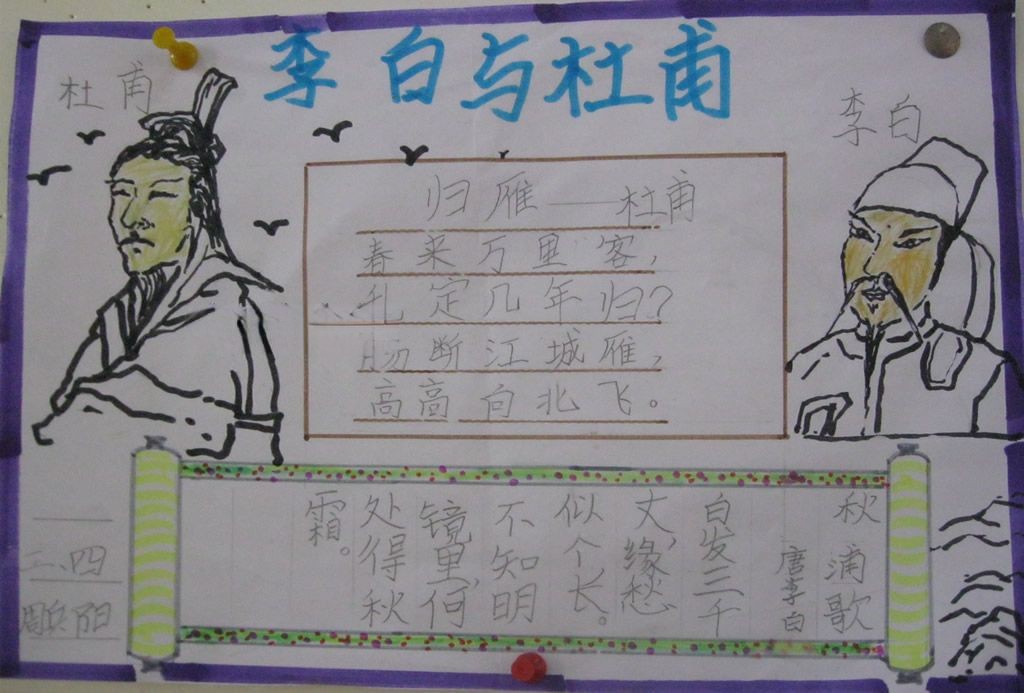 李白与杜甫
杜甫
李白
归雁——杜甫
春来万里客,
乱定几年归?
肠断江城雁,
高高向北飞。
秋浦歌
唐李白
白发三千
丈,缘愁
似个长。
不知明
镜里,何
处得秋
霜。
二、四
周
阳